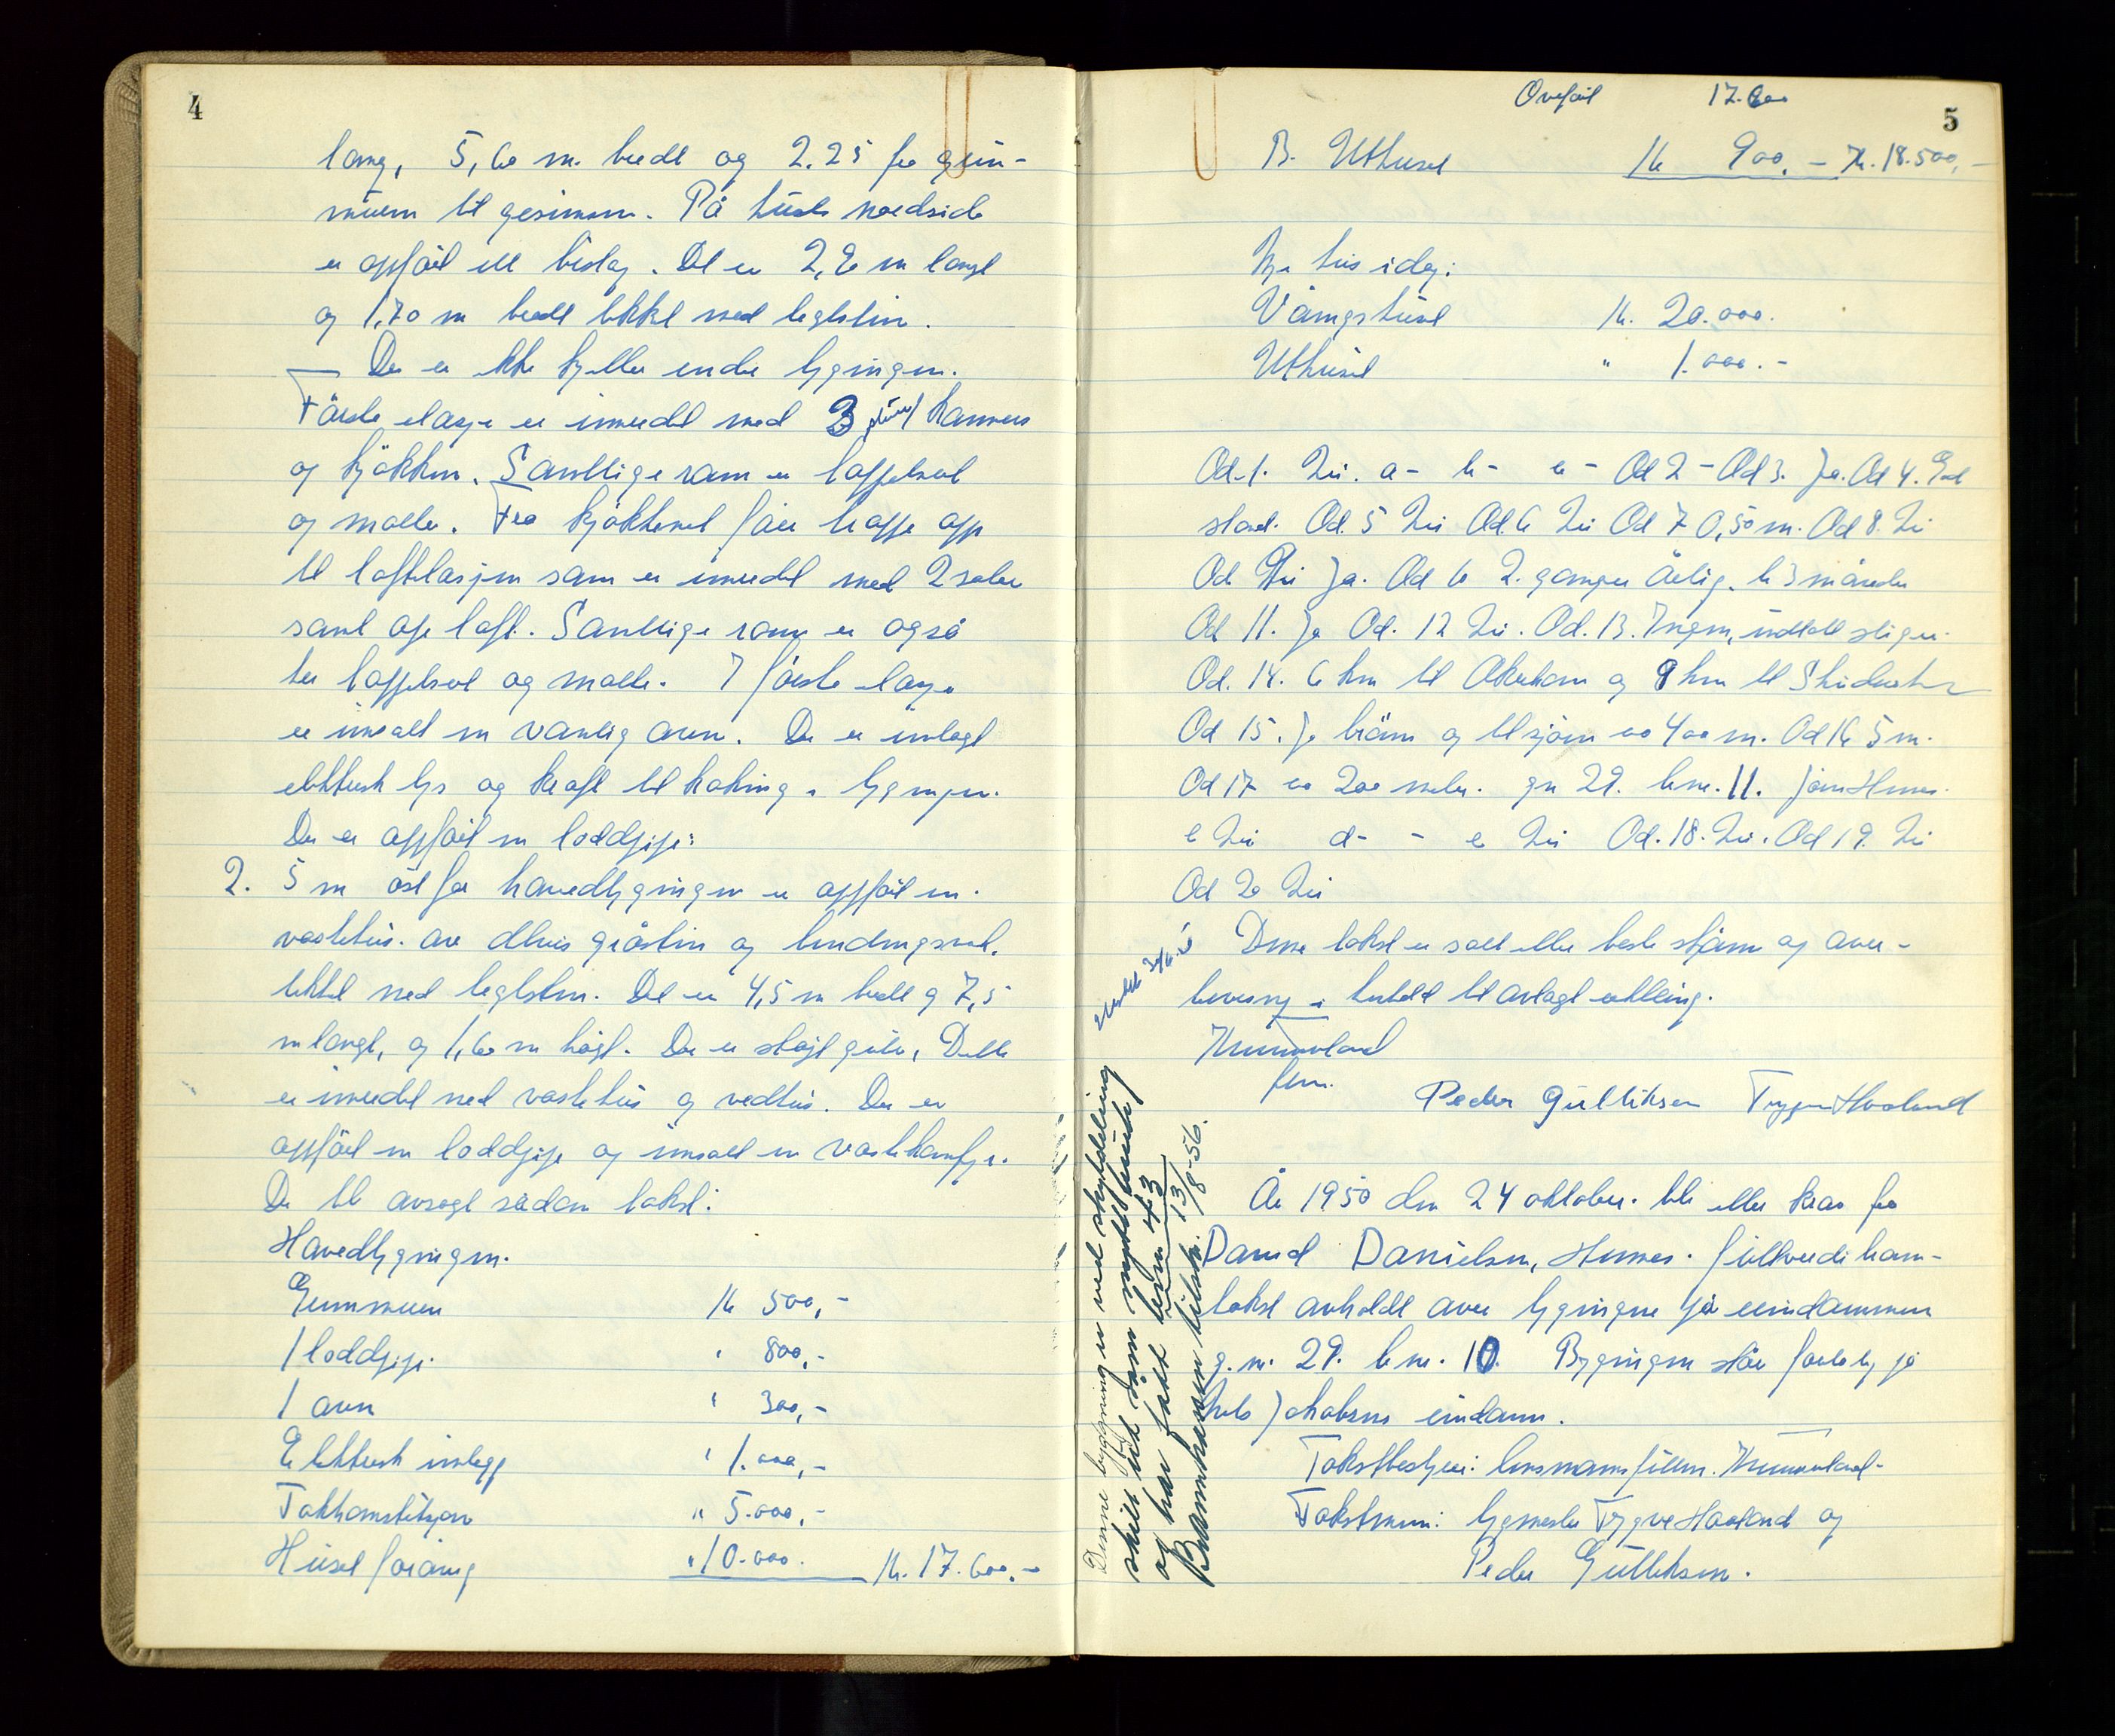 4
lang, 5,60 m. bredt og 2.25 fra grun-
muren til gesimsen. På husets nordside
er oppført ett bislag. Det er 2,20 m langt
og 1,70 m bredt tekket med teglstein.
Der er ikke kjeller under bygningen.
Første etasje er innredet med 3 stuer kammers
og kjøkken. Samtlige rom er taffelsert
og malte. Fra kjøkkenet fører trappe opp
til loftetasjen som er innredet med 2 saler
samt åpe loft. Samtlige rom er også
her taffelsert og malte. I første etasje
er innsatt en vanlig ovn. Der er innlagt
elektrisk lys og kraft til koking i bygningen.
Der er oppført en loddpipe.
2. 5 m øst for hovedbygningen er oppført en
vaskehus av delvis gråstein og bindingsverk.
tekket med teglstein. Det er 4,5 m bredt og 7,5
m langt, og 1,60 m høgt. Der er støpt gulv. Dette
er innredet med vaskehus og vedhus. Der er
oppført en loddpipe og innsatt en vaskekomfyr.
Der ble avsagt sådan takst:
Hovedbygningen.
Grunnmuren Kr 500,-
1 loddpipe. " 800,-
1 ovn " 300,-
Elektrisk innlegg " 1.000,-
Takkonstruksjon " 5.000,-
Huset forövrig " 10.000. Kr. 17.600.-
5
Overført 17.600
B. Uthuset Kr 900.- Kr. 18.500,-
Nye hus i dag:
Våningshuset Kr. 20.000.
Uthuset " 1.000.-
Od. 1. Nei. a - b - c - Od 2 - Od 3. Ja. Od 4. God
stand. Od. 5 Nei Od. 6 Nei Od 7 0,50 m. Od 8. Nei
Od 9 Ja. Od 10 2. ganger årlig. 3 måneder
Od 11. Ja Od. 12 Nei. Od. 13. Ingen, unntatt stiger.
Od. 14. 6 km til Åkrehamn og 9 km til Skudenes
Od 15. Ja brønn og til sjøen ca 400 m. Od 16 5 m.
Od 17 ca 200 meter. gn 29. br nr. 11.
c Nei d - - e Nei Od. 18. Nei. Od 19. Nei
Od 20 Nei
Denne takst er satt etter beste skjønn og over-
bevisning i henhold til avlagt erklæring.
Peder Gulliksen Trygve Haaland
År 1950 den 24 oktober. ble etter krav fra
David Danielsen, Hemnes. fullverdi bran-
takst avholdt over bygningene på eiendommen
g.nr. 29. br nr. 10. Bygningen står foreløbig på
Jakobsens eiendom.
Takstbestyrer: lensmannsfullm.
Takstmenn: bygmester Trygve Haaland og
Peder Gulliksen.
Denne bygning er ved skyldeling
skilt ut som nytt bruk
og har fått br.nr 43
Brannkassen tilskr. 13/8-56.